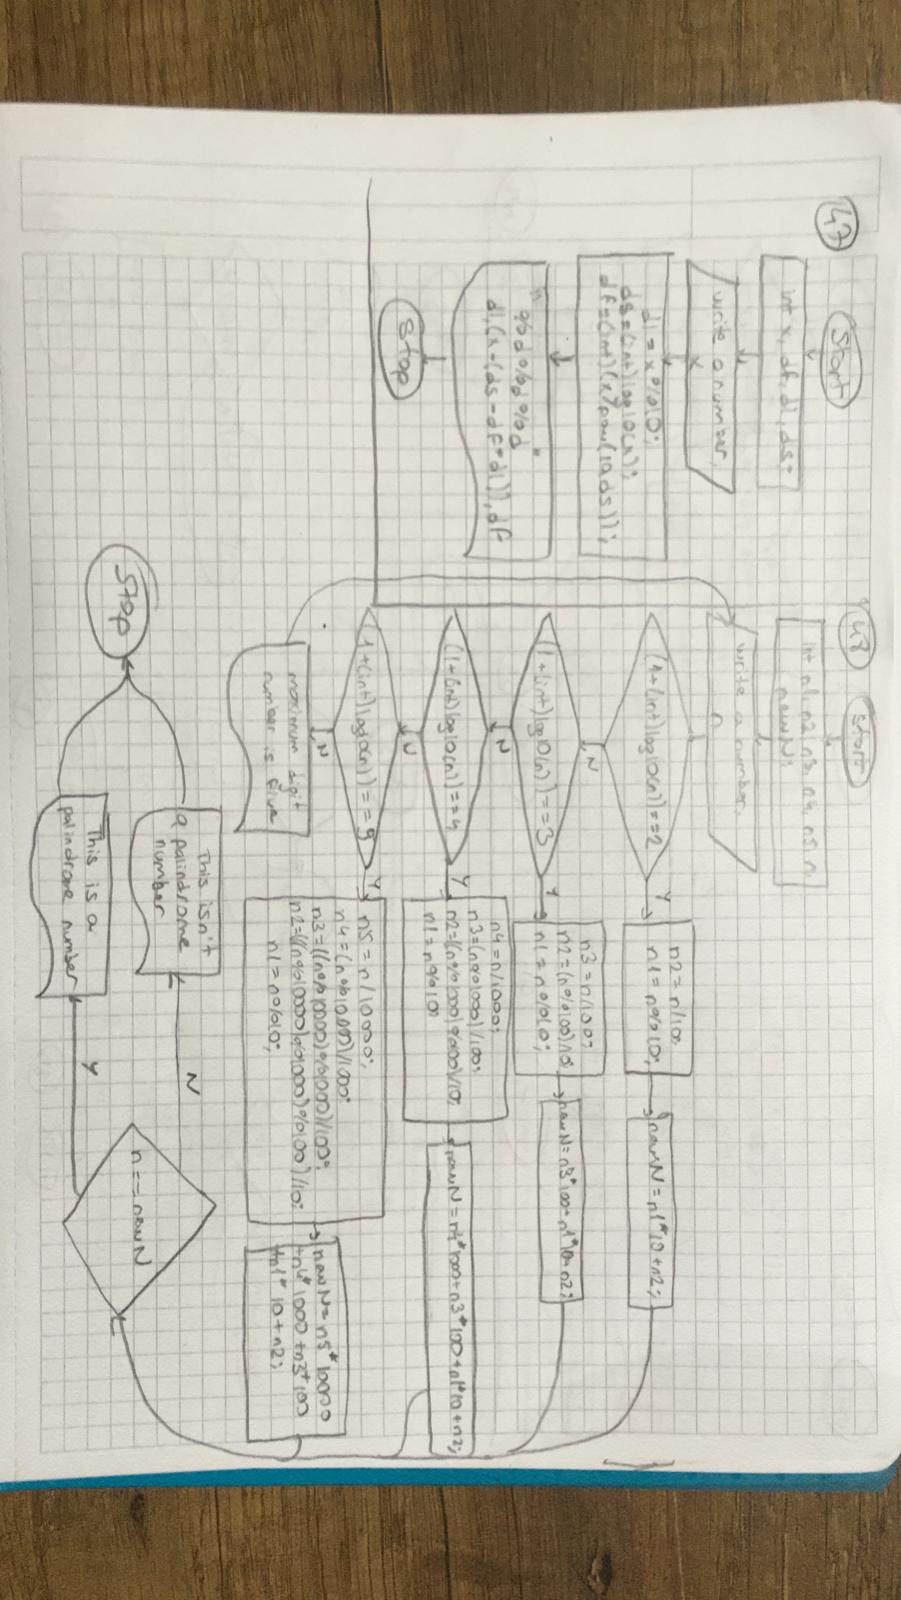 47
Start
int x, df, dl, ds;
write a number,
x
dl = x%10;
ds=(int)log10(x);
df=(int)(x/pow(10,ds));
"%d%d%d"
dl,(x-(ds-df*dl)),df
Stop
48
Start
int n1,n2,n3,n4,n5,n,
newN;
write a number,
n
(1+(int)log10(n))==2
Y
n2=n/10;
n1=n%10;
newN=n1*10+n2;
N
1+(int)log10(n))==3
Y
n3=n/100;
n2=(n%100)/10;
n1=n%10;
newN=n3*100+n1*10+n2;
N
(1+(int)log10(n))==4
Y
n4=n/1000;
n3=(n%1000)/100;
n2=((n%1000)%100)/10;
n1=n%10
newN=n4*1000+n3*100+n1*10+n2;
N
1+(int)log10(n))==5
Y
n5=n/10000;
n4=(n%10000)/1000;
n3=((n%10000)%1000)/100;
n2=((n%10000)%1000)%100)/10;
n1=n%10;
newN=n5*10000
+n4*1000+n3*100
+n1*10+n2;
N
maximum digit
number is five
n==newN
N
This isn't
a palindrome
number
Y
This is a
palindrome number
Stop